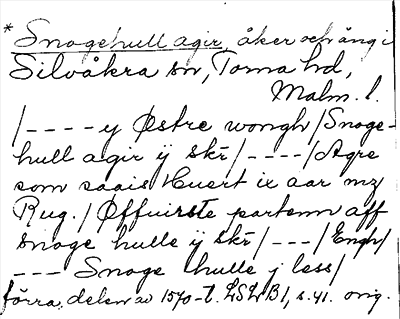 * Snogehull agir, åker och äng i
Silvåkra sn, Torna hd,
Malm. l.
/----y Østre wongh/Snoge-
hull agir ÿ skr/----/Agre
som saais Huert ix aar mz
Rug./Øffuirste partenn aff
snoge hulle ÿ skr/---/Engh/
--- Snoge hulle j less/
förra delen av 1570-t. LSLB1, s. 41. orig.